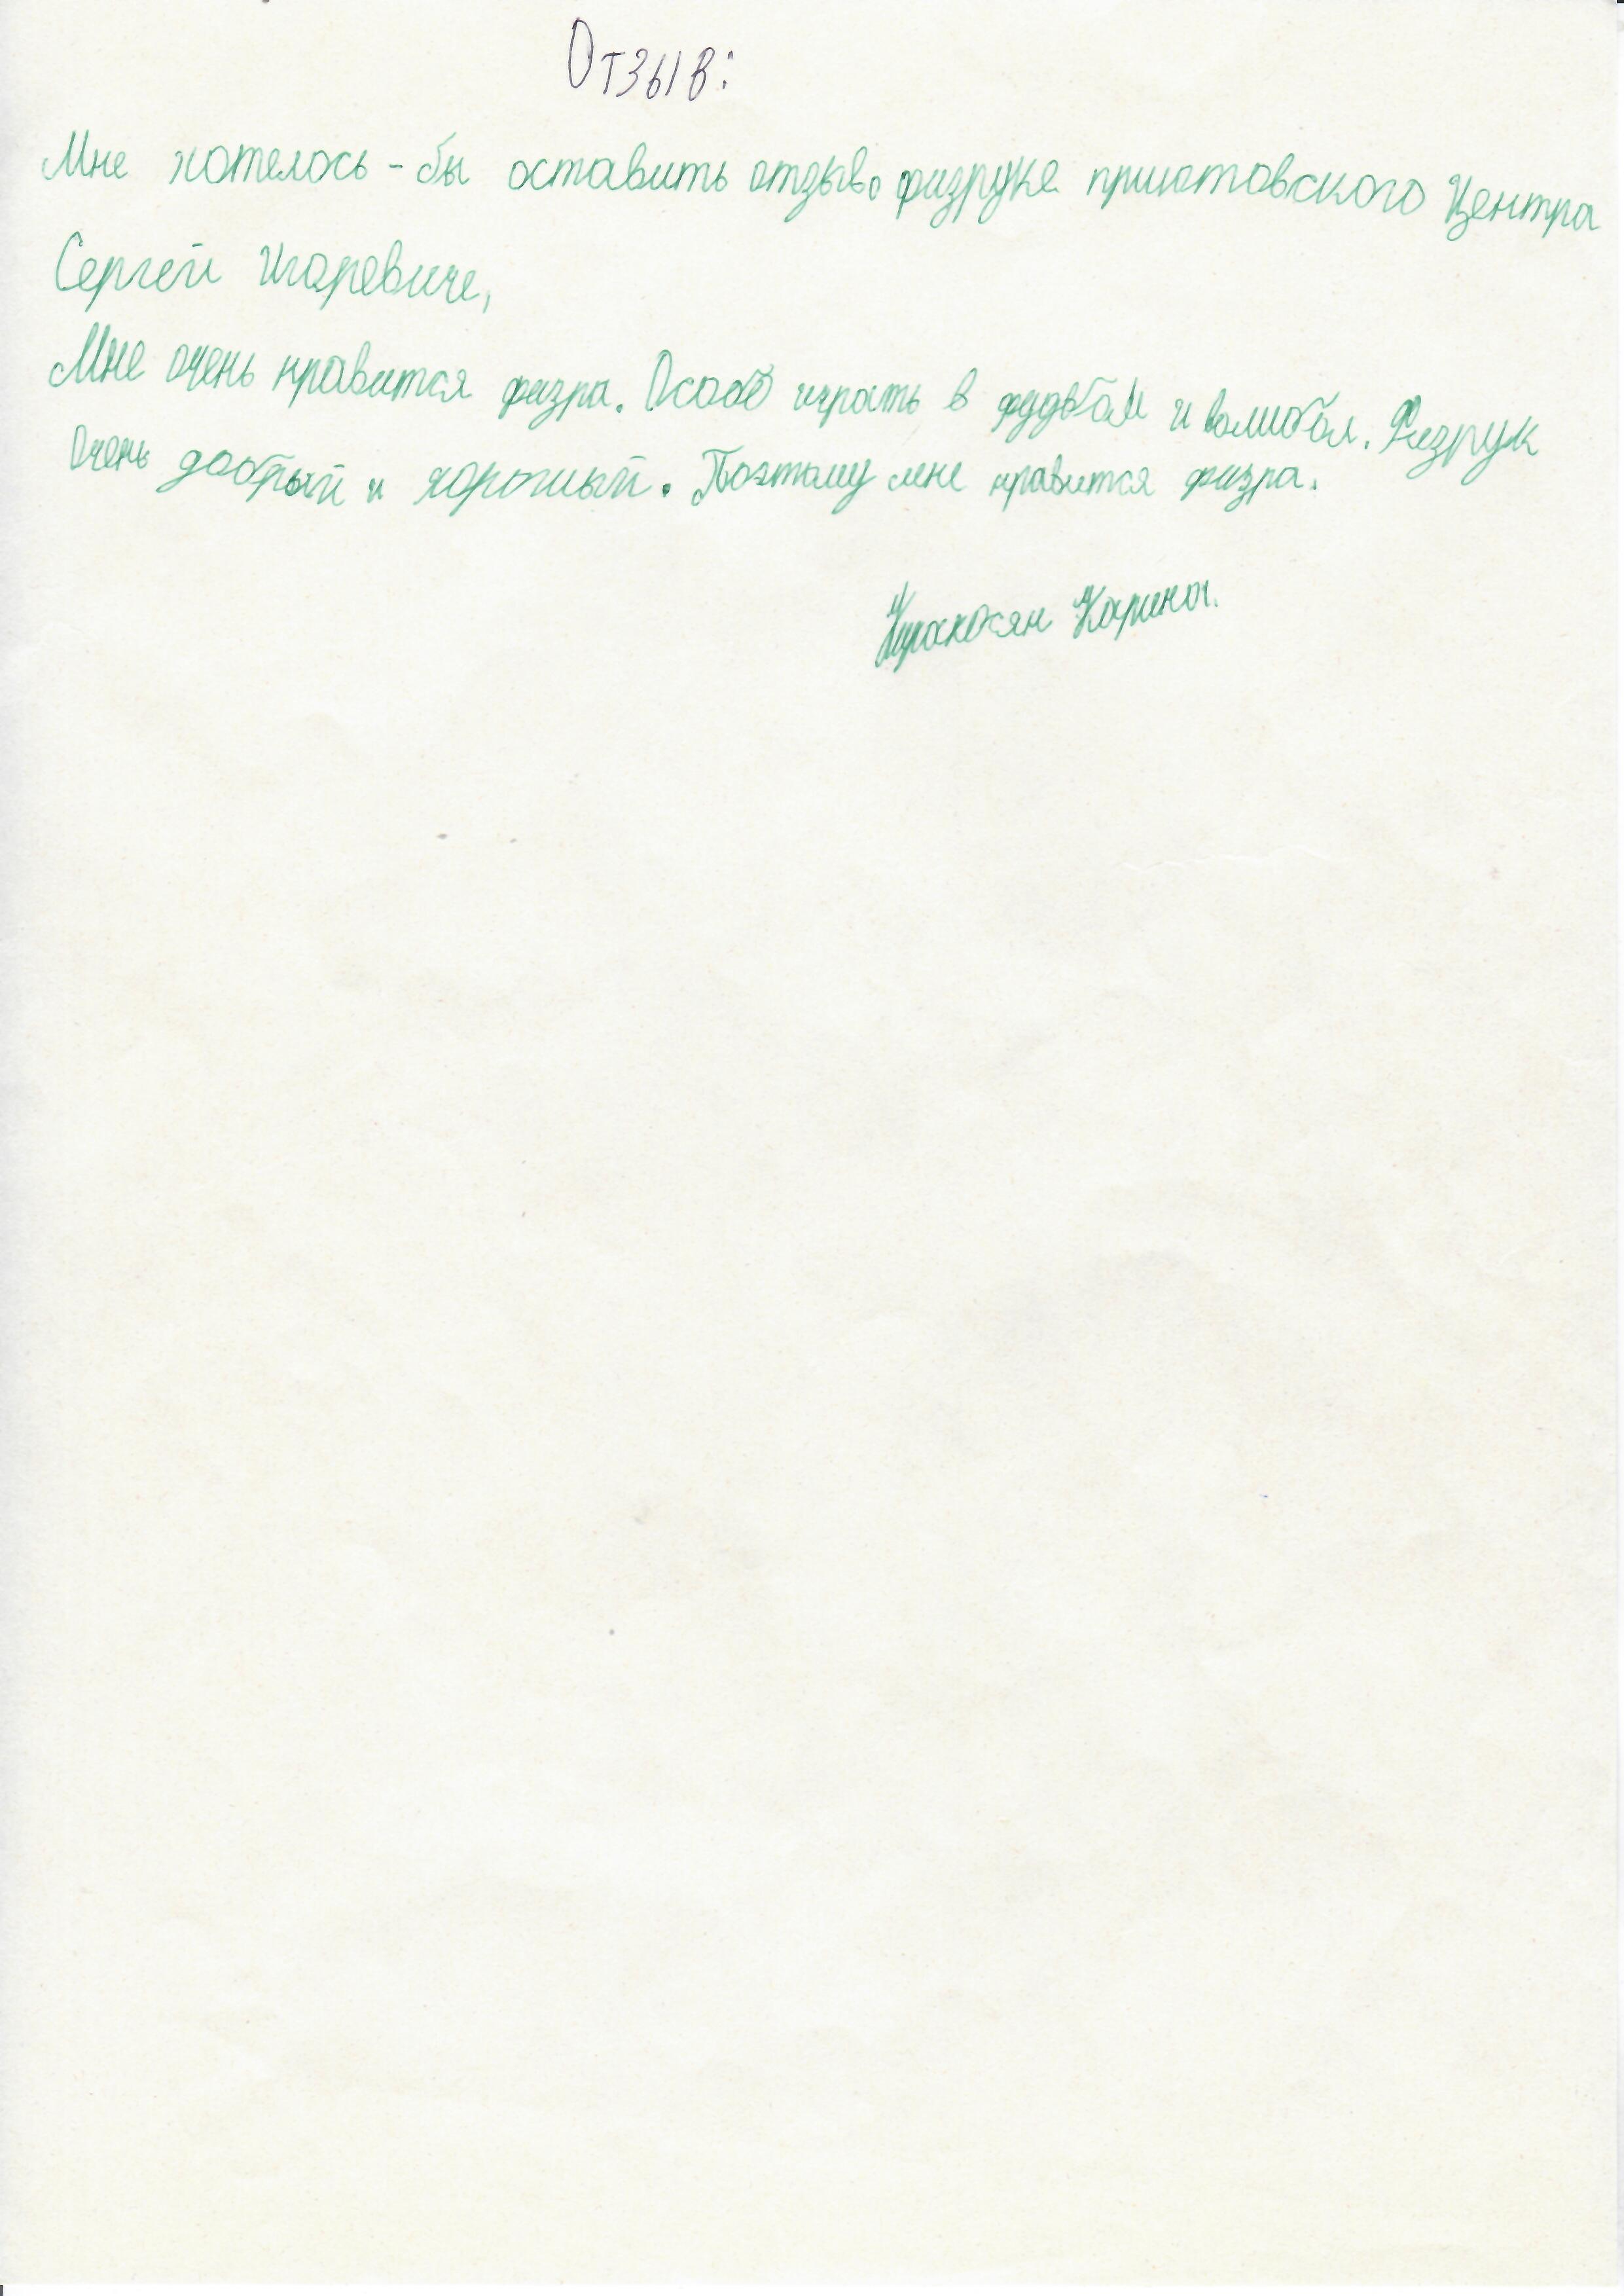 Отзыв:
Мне хотелось-бы оставить отзыв о физруке приютовского Центра
Сергей Игоревиче,
Мне очень нравится физра. Особо играть в фудьбол и волибол. Физрук
Очень добрый и хороший. Поэтому мне нравится физра.
Киракосян Карина.